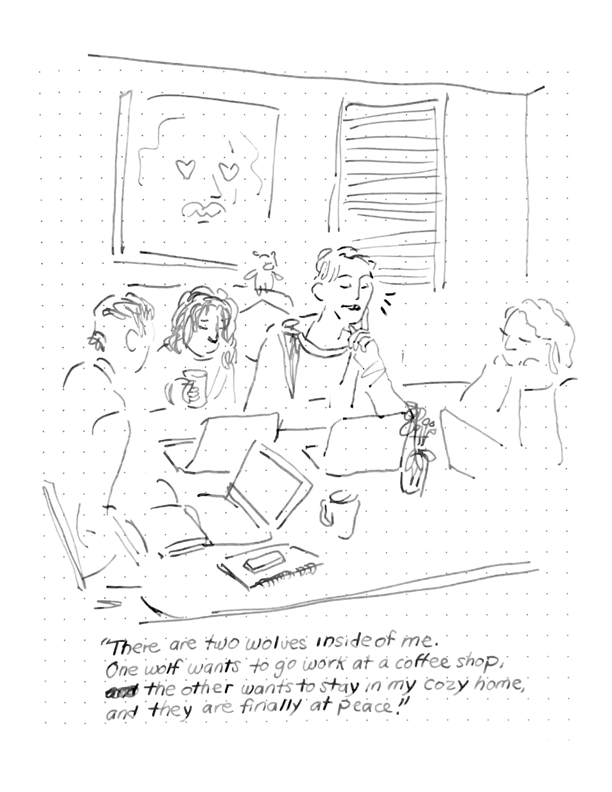 "There are two wolves inside of me.
One wolf wants to go work at a coffee shop,
the other wants to stay in my cozy home,
and they are finally at peace!"